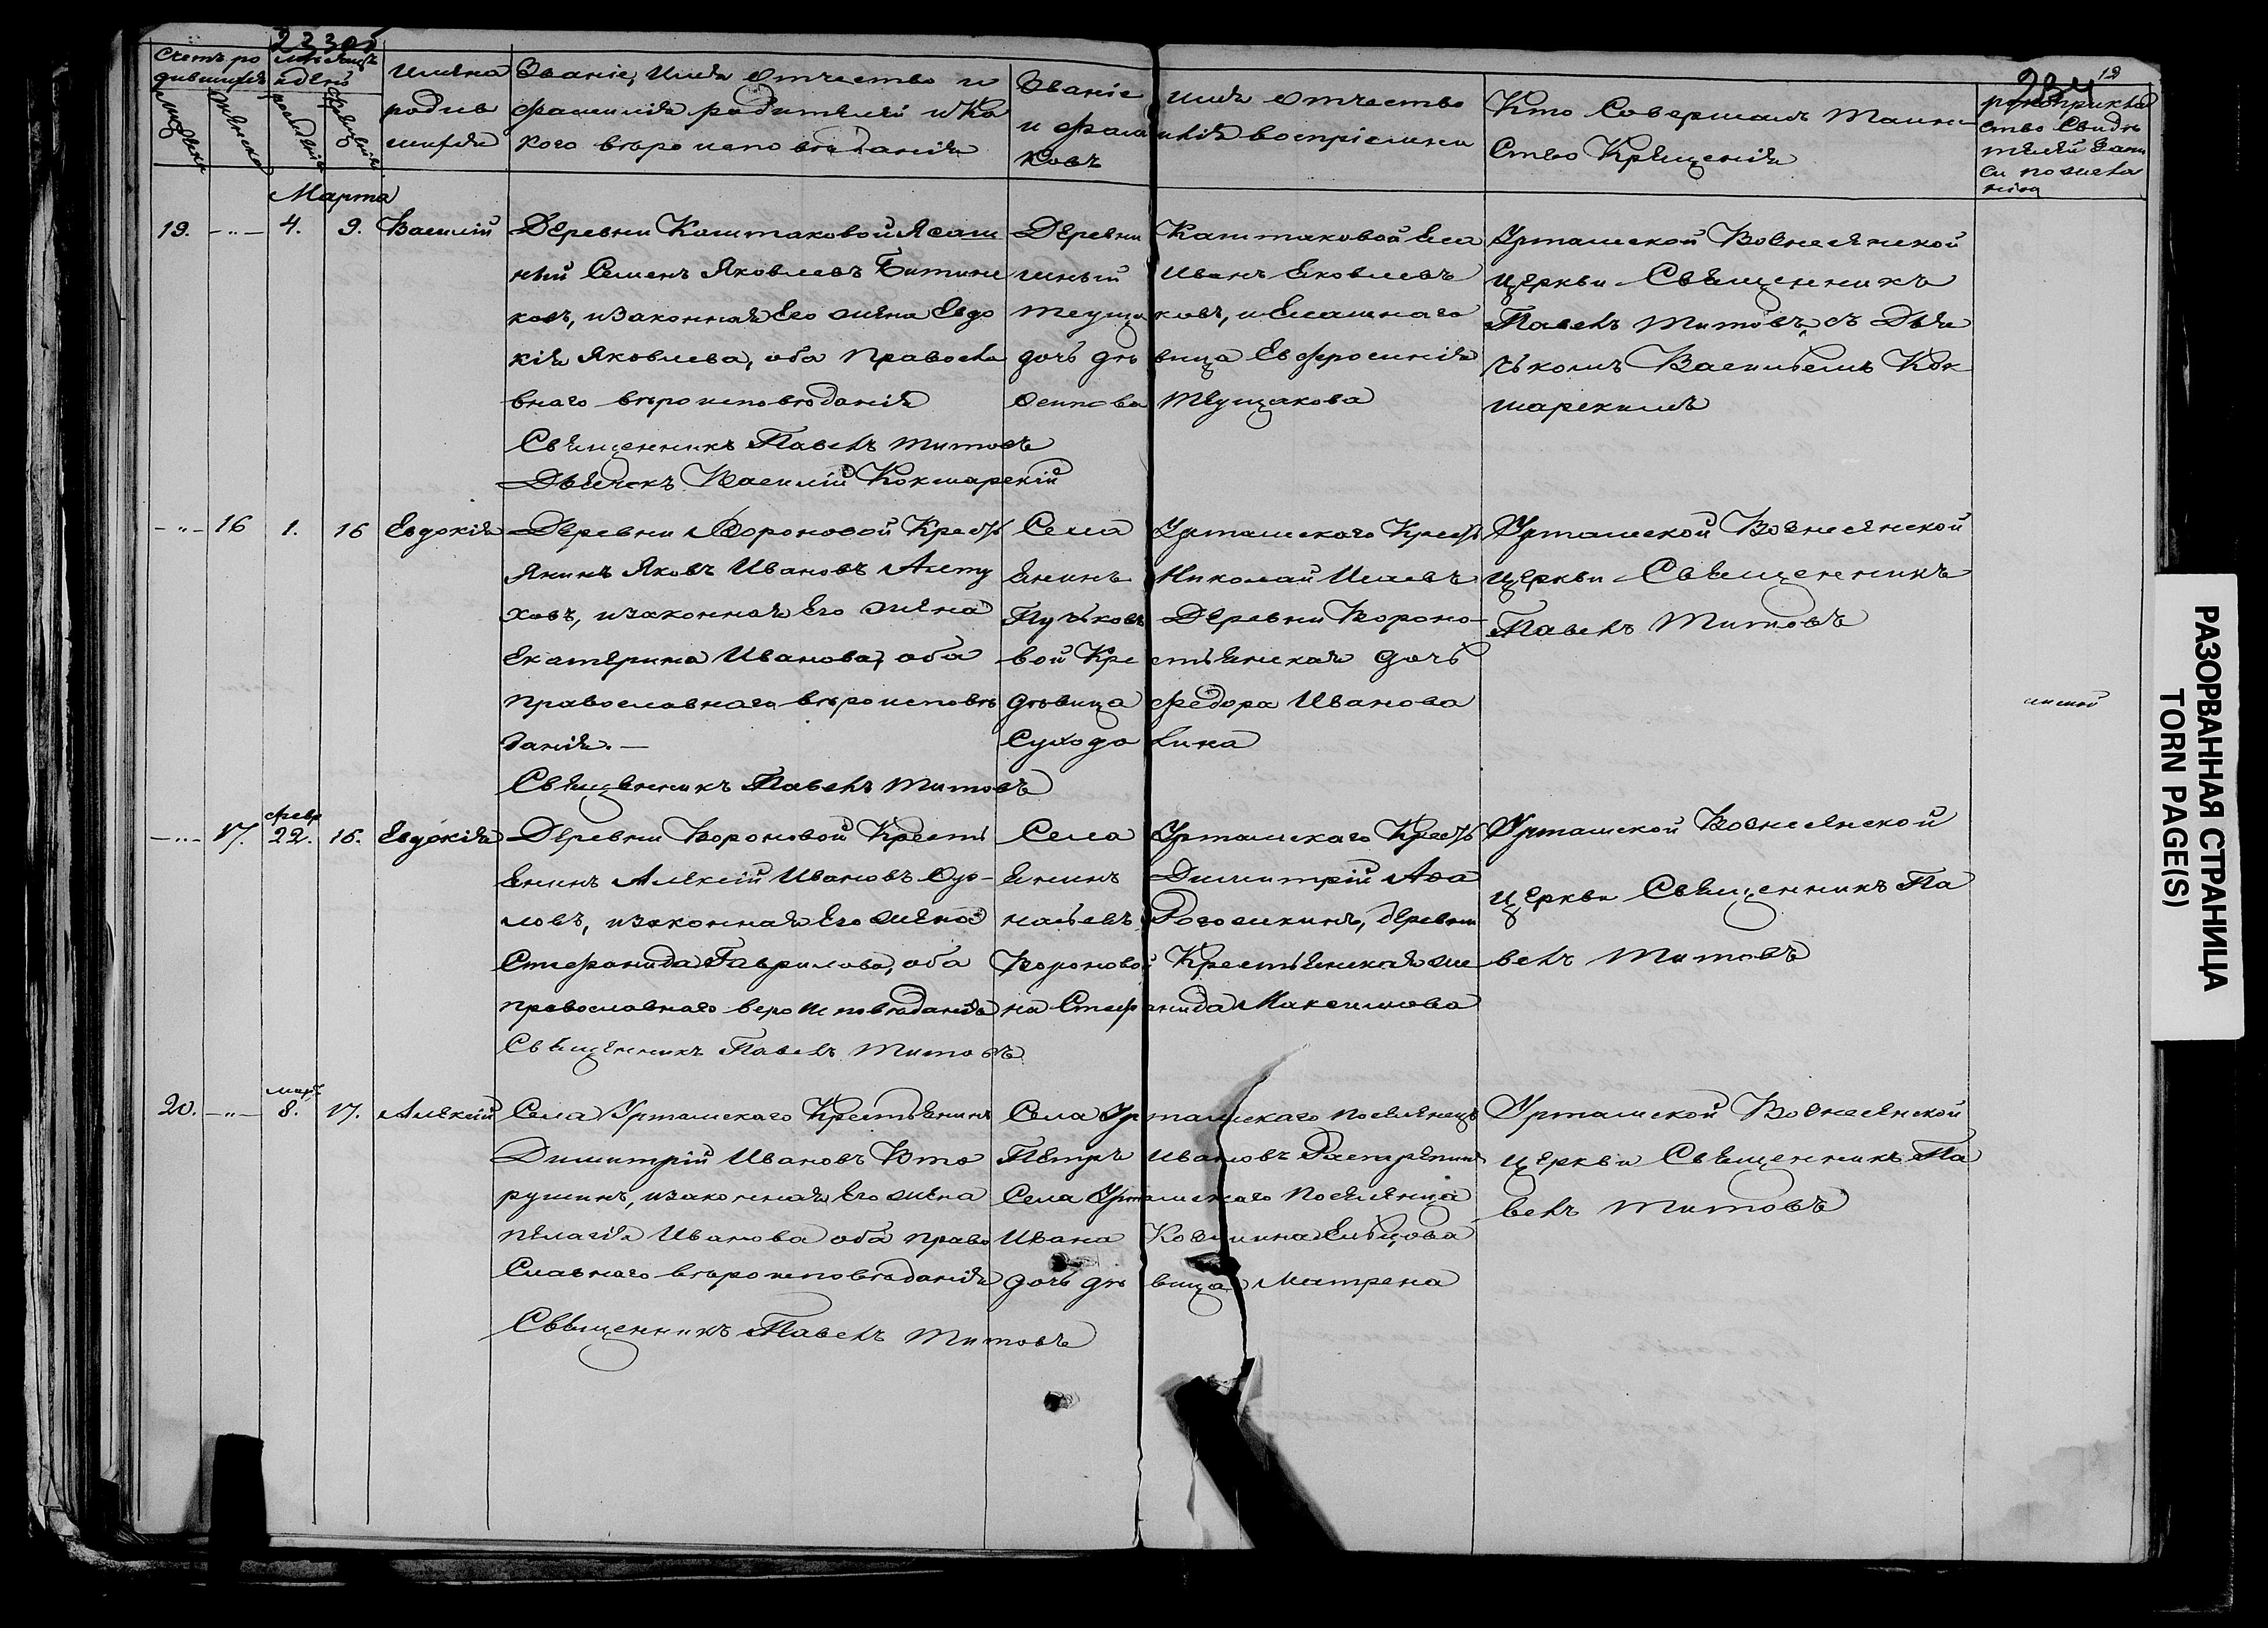 233об
234
12
Счетъ ро
дившихся
Мѣсяцъ
и день
Мужеска
Женска
рождения
крещения
Имена
родив
шихся
Званіе, Имя отчество и
фамилия родителей и Ка
кого вѣроисповѣданія
Званіе имя отчество
и фамилія воспріемни
ковъ
Кто Совершалъ Таин-
Ство Крещенія
рукоприклад
ство Свидѣ
телей запи
си по жела
нію
Марта
19. -"- 4. 9. Василій
Деревни Каштаковой Ясаш
ный Семенъ Яковлевъ
ковъ, и законная Его жена Евдо
кія Яковлева, оба Правосла
внаго вѣроисповѣданія
Священникъ Павелъ Титовъ
Дьячекъ Василій Кокшарскій
Деревни Каштаковой Яса
шный Иванъ Яковлевъ
Теущаковъ, и Ясашнаго
дочь дѣвица Евфросинія
Осипова Теущакова
Урташской Вознесенской
церкви Священникъ
Павелъ Титовъ съ Дья
чькомъ Васильемъ Кок-
шарскимъ
-"- 16 1. 16 Евдокія
Деревни Вороновой Кресть
янинъ Яковъ Ивановъ Алту
ховъ, и законная Его жена
Екатерина Иванова, оба
православнаго вѣроисповѣ
данія.—
Священникъ Павелъ Титовъ
Села Урташскаго Кресть
янинъ Николай Исаевъ
Пучьковъ Деревни Вороно-
вой Крестьянская дочь
дѣвица Федора Иванова
Суходолина
Урташской Вознесенской
церкви Священникъ
Павелъ Титовъ
-"- 17. Февр 22. 16. Евдокія
Деревни Вороновой Кресть
янинъ Алексій Ивановъ
ловъ, и законная Его жена
Стефанида Гаврилова, оба
православнаго вероисповѣданія
Священникъ Павелъ Титовъ
Села Урташскаго Кресть
янинъ Димитрій Афа
насьевъ Рогожкинъ, деревни
Вороновой Крестьянская же
на Стефанида Максимова
Урташской Вознесенской
церкви Священникъ Па
велъ Титовъ
20. -"- март 8. 17. Алексій
Села Урташскаго Крестьянинъ
Димитрій Ивановъ Вто
рушинъ, и законная Его жена
Пелагія Иванова оба право
Славнаго вѣроисповѣданія
Священникъ Павелъ Титовъ
Села Урташскаго поселенецъ
Петръ Ивановъ
Села Урташскаго Поселенца
Ивана
дочь дѣвица Матрена
Урташской Вознесенской
церкви Священникъ Па
велъ Титовъ
РАЗОРВАННАЯ СТРАНИЦА
TORN PAGE(S)